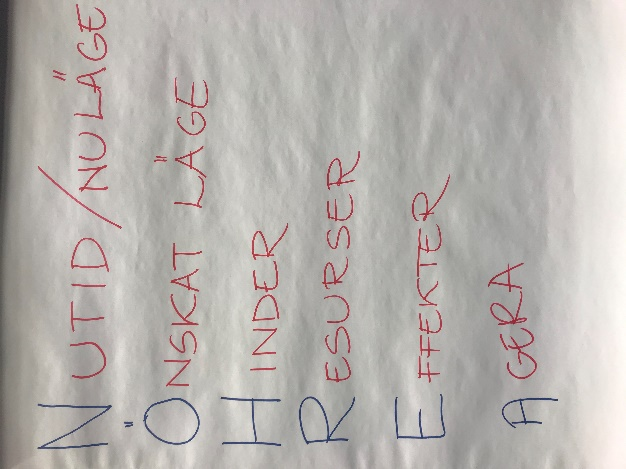 NUTID/NULÄGE
ÖNSKAT LÄGE
HINDER
RESURSER
EFFEKTER
AGERA